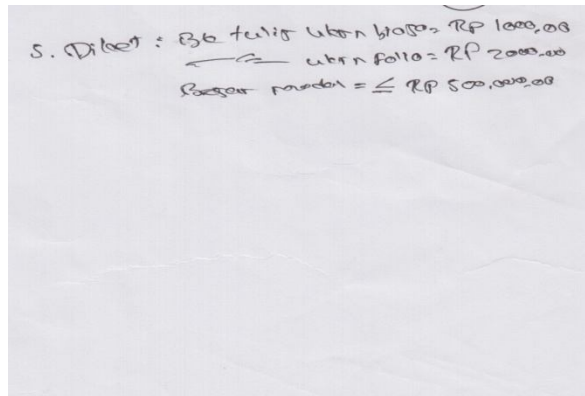 5. Diket : Bk tulis ukrn biasa = Rp 1000,00
ukrn folio = Rp 2000,00
Besar modal = ≤ Rp 500.000,00